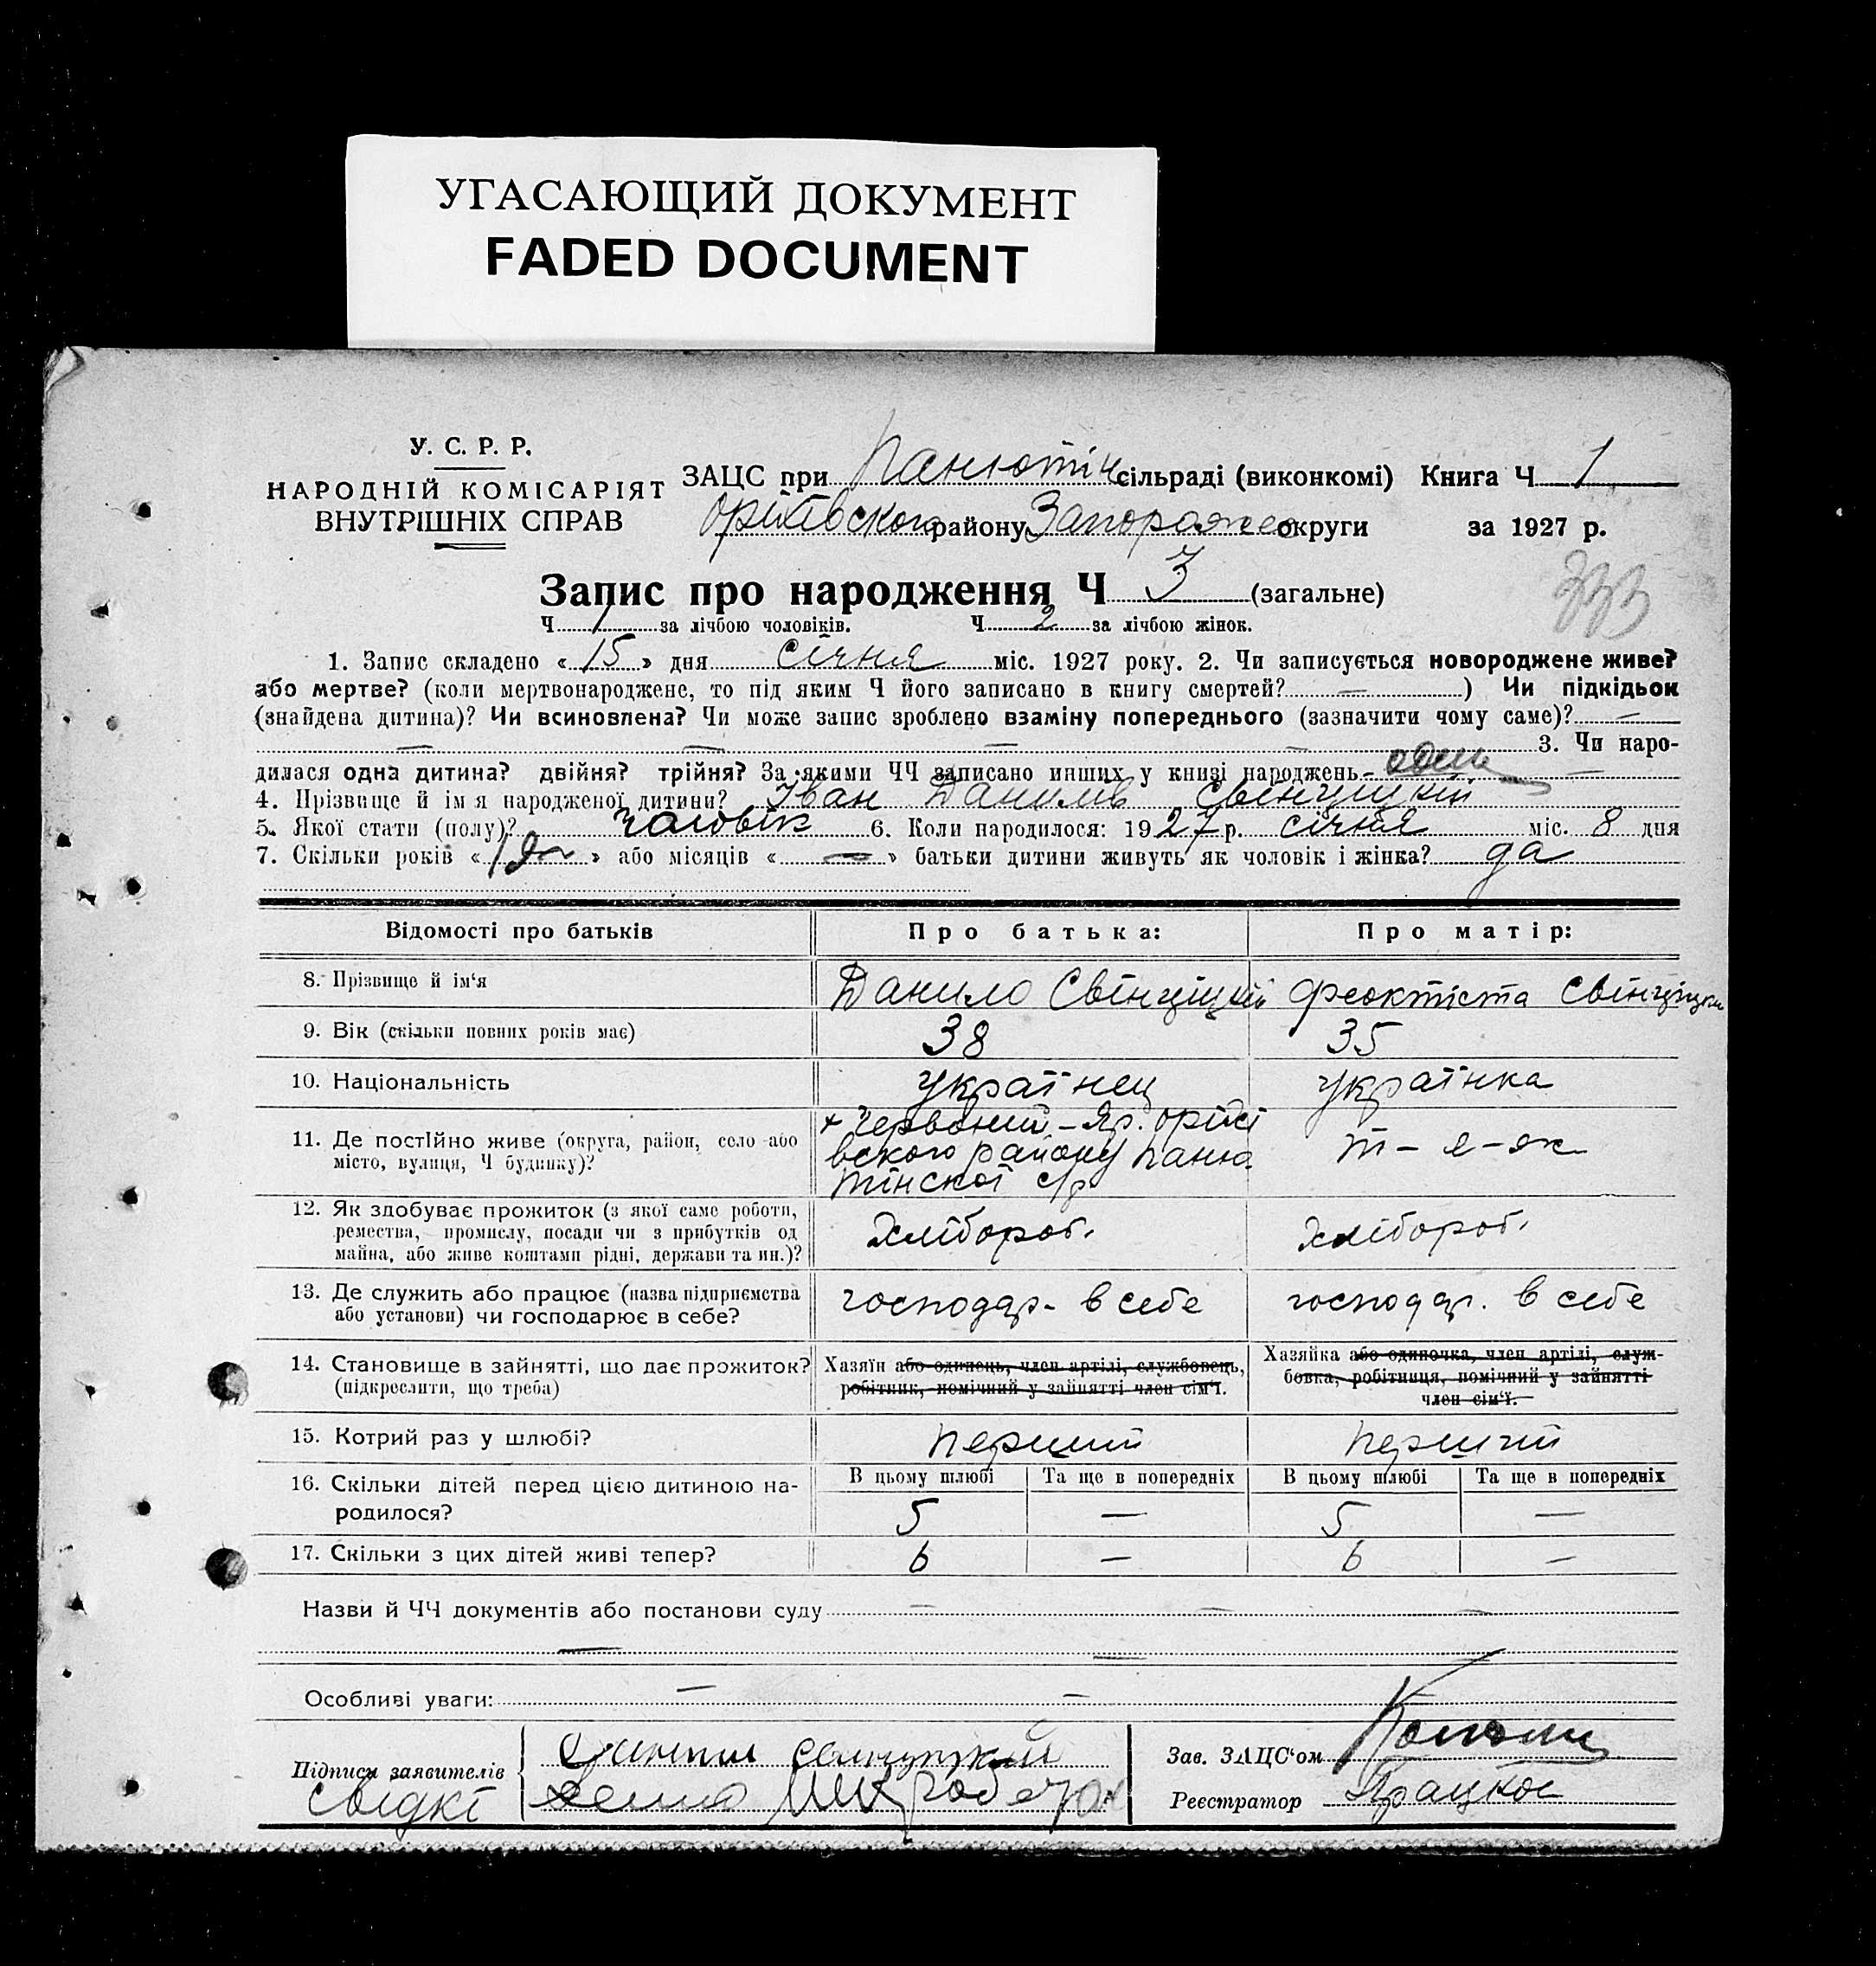 УГАСАЮЩИЙ ДОКУМЕНТ
FADED DOCUMENT
У. С. Р. Р.
НАРОДНІЙ КОМІСАРІЯТ
ВНУТРІШНІХ СПРАВ
ЗАЦС при Панютін сільраді (виконкомі) Книга Ч 1
Оріхівского району Запорожс округи за 1927 р.
Запис про народження Ч 3 (загальне)
333
Ч 1 за лічбою чоловіків. Ч 2 за лічбою жінок.
1. Запис складено « 15 » дня січня міс. 1927 року. 2. Чи записується новороджене живе?
або мертве? (коли мертвонароджене, то під яким Ч його записано в книгу смертей? — ) Чи підкідьок
(знайдена дитина)? Чи всиновлена? Чи може запис зроблено взаміну попереднього (зазначити чому саме)? —
— — — — 3. Чи наро-
дилася одна дитина? двійня? трійня? За якими ЧЧ записано инших у книзі народжень один —
4. Прізвище й ім я народженої дитини? Іван Данилів Свінціцкій
5. Якої стати (полу)? чаловік 6. Коли народилося: 1927 р. січня міс. 8 дня
7. Скільки років « » або місяців « — » батьки дитини живуть як чоловік і жінка? да
Відомості про батьків Про батька: Про матір:
8. Прізвище й ім‘я Данило Свінціцкій Феоктіста Свінціцки
9. Вік (скільки повних років має) 38 35
10. Національність українец українка
11. Де постІйно живе (округа, район, село або
місто, вулиця, Ч будинку)?
х Червоний-Яр. Оріхі
вского району Паню
тінскої с/р
т-я-ж
12. Як здобуває прожиток (з якої саме роботи,
ремества, промислу, посади чи з прибутків од
майна, або живе коштами рідні, держави та ин.)?
Хлібороб. Хлібороб.
13. Де служить або працює (назва підприємства
або установи) чи господарює в себе?
господар- в себе господар. в себе
14. Становище в зайнятті, що дає прожиток?
(підкреслити, що треба)
Хазяїн або одинець, член артілі, службовець,
робітник, помічний у зайнятті член сім‘ї.
Хазяйка або одиночка, член артілі, служ-
бовка, робітниця, помічний у зайнятті
член сім‘ї.
15. Котрий раз у шлюбі? перший перший
16. Скільки дітей перед цією дитиною на-
родилося?
В цьому шлюбі Та ще в попередніх В цьому шлюбі Та ще в попередніх
5 — 5 —
17. Скільки з цих дітей живі тепер? 6 — 6 —
Назви й ЧЧ документів або постанови суду — — —
— —
Особливі уваги: — —
Підписи заявителів
Свідкі
Зав. ЗАЦС‘ом
Реєстратор